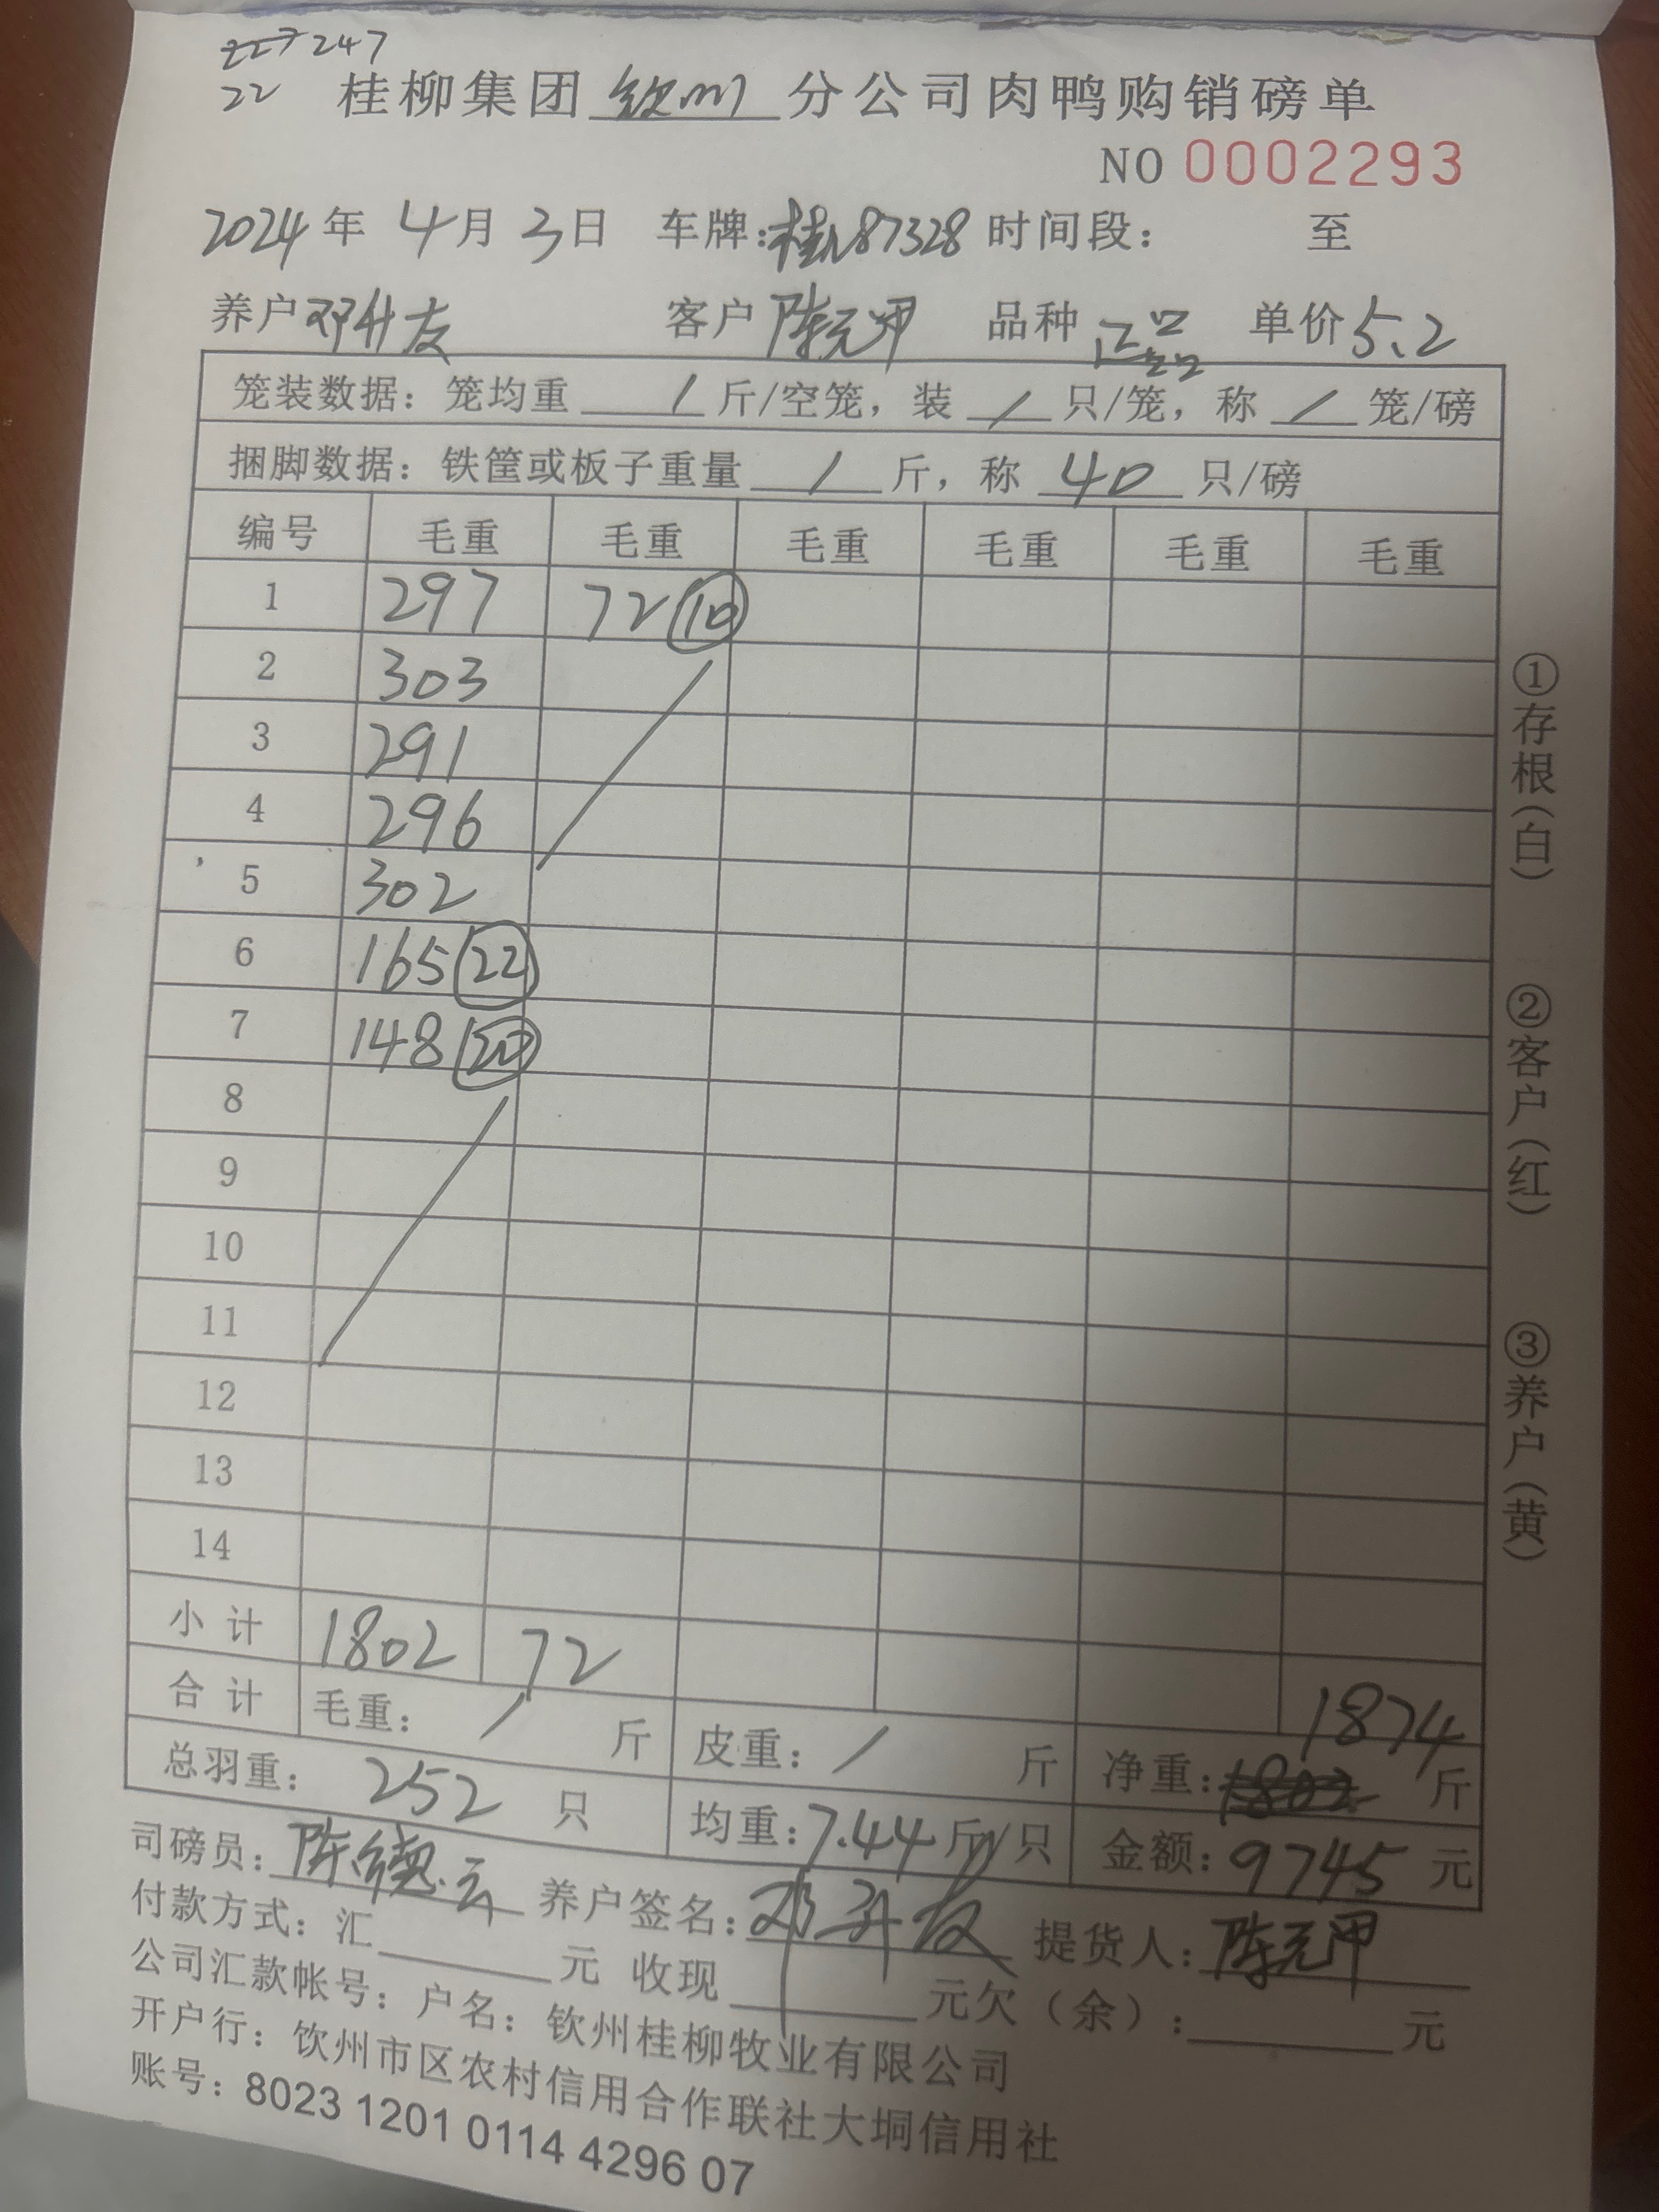 247
22 桂柳集团钦州分公司肉鸭购销磅单
NO 0002293
2024年 4月 3日 车牌:桂N87328 时间段: 至
养户 邓升友 客户 陈元甲 品种 正品 单价 5.2
笼装数据:笼均重 / 斤/空笼,装 / 只/笼,称 / 笼/磅
捆脚数据:铁筐或板子重量 / 斤,称 40 只/磅
编号 毛重 毛重 毛重 毛重 毛重 毛重
1 297 72 (10)
2 303
3 291
4 296
5 302
6 165 (22)
7 148 (20)
8
9
10
11
12
13
14
小计 1802 72
合计 毛重: / 斤 皮重: / 斤 净重: 1802 1874 斤
总羽重: 252 只 均重: 7.44 斤/只 金额: 9745 元
司磅员: 陈德云 养户签名: 邓升友 提货人: 陈元甲
付款方式:汇 元 收现 元欠(余): 元
公司汇款帐号:户名:钦州桂柳牧业有限公司
开户行:钦州市区农村信用合作联社大垌信用社
账号:8023 1201 0114 4296 07
①存根(白) ②客户(红) ③养户(黄)